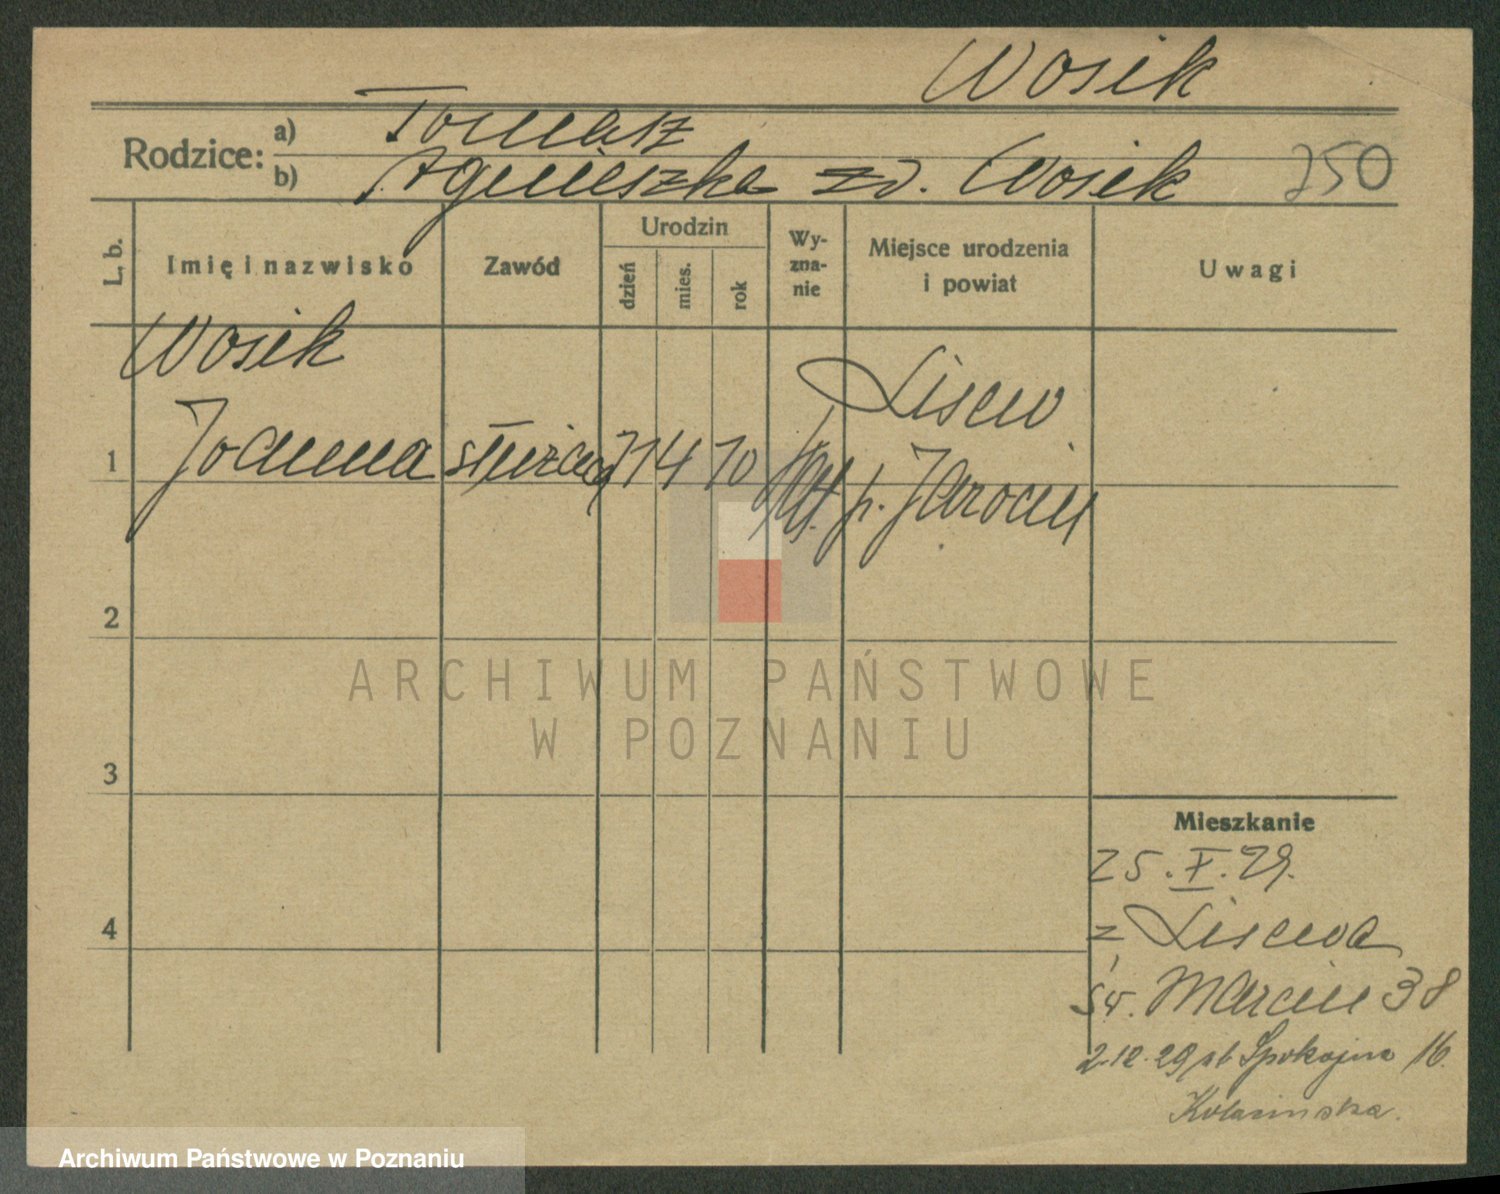 Wosik
Rodzice: a) Tomasz
b) Agnieszka zd. Wosik 250
L. b.
Imię i nazwisko
Zawód
Urodzin
dzień
mies.
rok
Wy-
zna-
nie
Miejsce urodzenia
i powiat
Uwagi
Wosik
Joanna służąca
1
Lisew
p. Jarocin
2
3
4
Mieszkanie
25. X. 29.
z Lisewa
św. Marcin 38
2.12.29 Spokojna 16.
ARCHIWUM PAŃSTWOWE
W POZNANIU
Archiwum Państwowe w Poznaniu